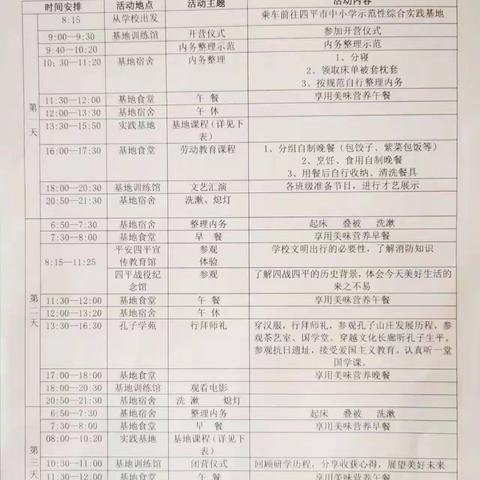 时间安排 活动地点 活动主题 活动内容
8:15 从学校出发 乘车前往四平市中小学示范性综合实践基地
9:00—9:30 基地训练馆 开营仪式 参加开营仪式
9:40—10:20 内务整理示范 内务整理示范
10:30—11:20 基地宿舍 内务整理 1、分寝
2、领取床单被套枕套
3、按规范自行整理内务
第一天
11:30—12:00 基地食堂 午 餐 享用美味营养午餐
12:00—13:30 基地宿舍 午 休
13:30—15:50 实践基地 基地课程(详见下表)
16:00—17:30 基地食堂 劳动教育课程 1、分组自制晚餐(包饺子、紫菜包饭等)
2、烹饪、食用自制晚餐
3、用餐后自行收纳、清洗餐具
18:00—20:30 基地训练馆 文艺汇演 各班级准备节目,进行才艺展示
20:50—21:30 基地宿舍 洗漱、熄灯
6:50—7:30 基地宿舍 整理内务 起床 叠被 洗漱
7:30—8:00 基地食堂 早 餐 享用美味营养早餐
8:15—11:25 平安四平宣传教育馆 参观体验 学校文明出行的必要性,了解消防知识
四平战役纪念馆 参观 了解四战四平的历史背景,体会今天美好生活的来之不易
第二天
11:30—12:00 基地食堂 午 餐 享用美味营养午餐
12:00—13:20 基地宿舍 午 休
13:30—16:30 孔子学苑 行拜师礼 穿汉服,行拜师礼,参观孔子山庄发展历程,参观茶艺室、国学堂。穿越文化长廊听孔子生平。参观抗日遗址,接受爱国主义教育。认真听一堂国学课。
17:00—18:00 基地食堂 享用美味营养晚餐
18:00—20:30 基地训练馆 观看电影
20:50—21:30 基地宿舍 洗 漱 熄灯
6:50—7:30 基地宿舍 整理内务 起床 叠被 洗漱
7:30—8:00 基地食堂 早 餐 享用美味营养早餐
第三天
08:00—10:20 实践基地 基地课程(详见下表)
10:30—11:00 基地训练馆 闭营仪式 回顾研学历程,分享收获心得,展望美好未来
11:30—12:00 基地食堂 午 餐 享用美味营养午餐